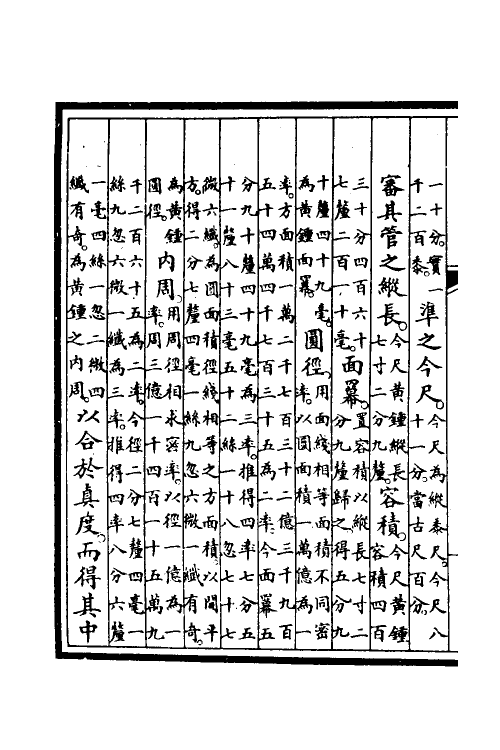 一十分。實一千二百黍。準之今尺。今尺為縱黍尺。今尺八十一分。當古尺百分。
審其管之縱長。今尺黃鍾縱長七寸二分九釐。容積。今尺黃鍾容積四百
三十分四百六十七釐二百一十毫。面冪。置容積以縱長七寸二分九釐歸之。得五分九
十釐四十九毫。為黃鍾面冪。圓徑。用面綫相等面積不同密率。以圓面積一萬億為一
率。方面積一萬二千七百三十二億三千九百五十四萬四千七百三十五為二率。今面冪五
分九十釐四十九毫為三率。推得四率七分五十一釐八十三毫五十二絲一十八忽七十七
微六纖。為圓面積徑綫相等之方面積。以開平方。得二分七釐四毫一絲九忽六微一纖有奇。
為黃鍾圓徑。內周。用周徑相求密率。以徑一億為一率。周三億一千四百一十五萬九
千二百六十五為二率。今徑二分七釐四毫一絲九忽六微一纖為三率。推得四率八分六釐
一毫四絲一忽二微四纖有奇。為黃鍾之內周。以合於真度。而得其中